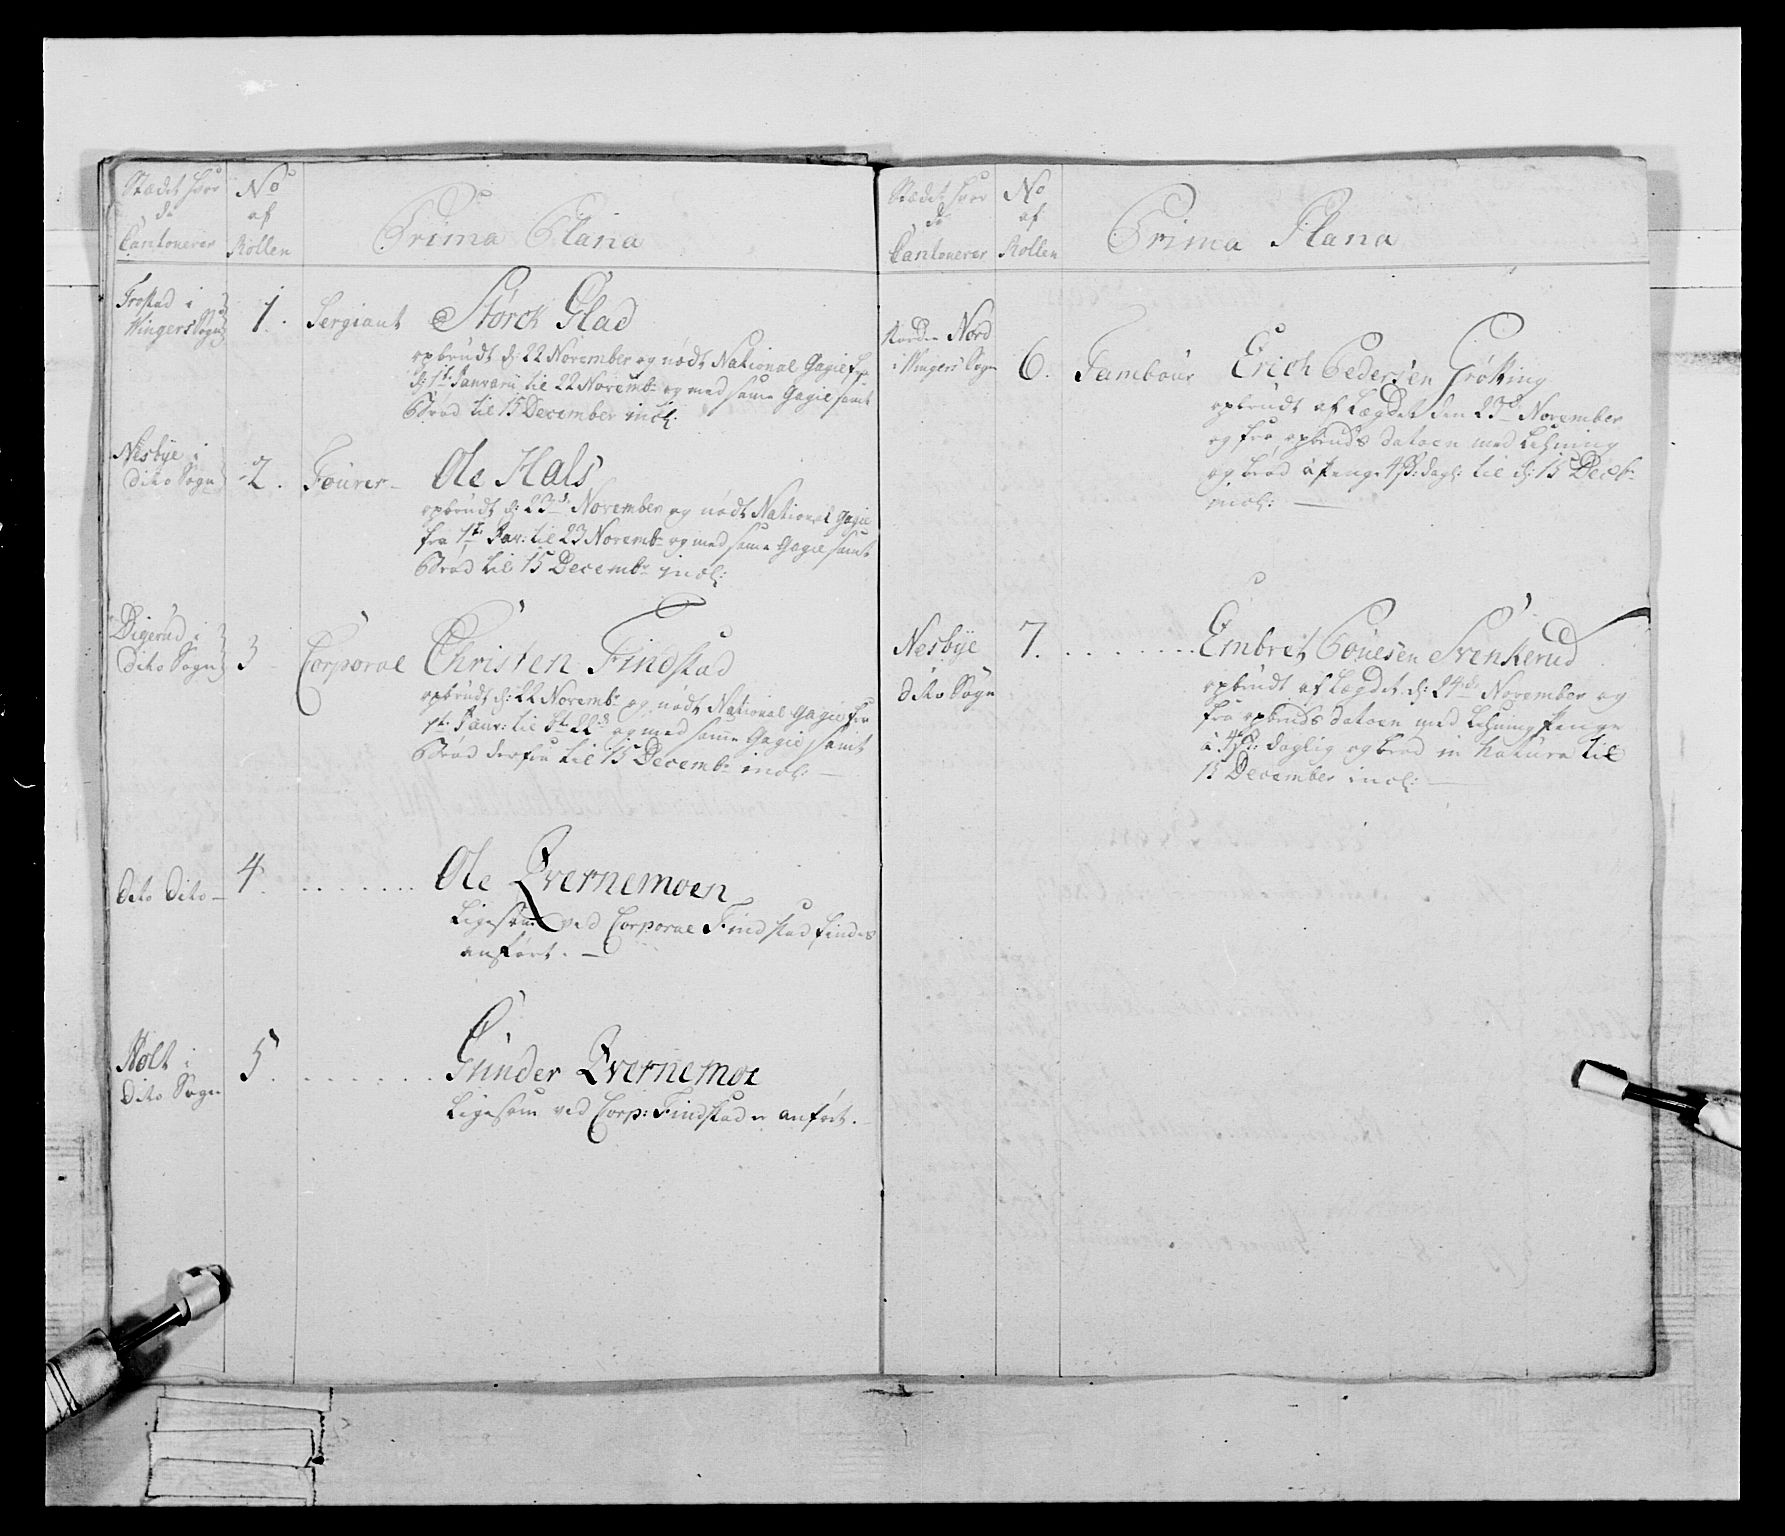 Stædet hvor
de
Cantonerer
No
af
Rollen
Prima Plana
Frostad i
Wingers Sogn
1.
Sergiant
Störch Glad
opbrudt d: 22 November og nödt National Gagie fra
d: 1t. Januarii til 22 Novembr og med samme Gagie samt
Bröd til 15 December incl:
Nesbye i
dito Sogn
2.
Fourer
Ole Hals
opbrudt d: 23d. November og nödt National Gagie
fra 1t. Jan: til 23 Novembr og med samme Gagie samt
Bröd til 15 Decembr incl:
Digerud i
dito Sogn
3
Corporal
Christen Findstad
opbrudt d: 22 Novembr og nödt National Gagie fra
1t. Janr: til 22d og med samme Gagie, samt
Bröd til 15 Decembr incl:
dito dito
4.
Ole Qvernemoen
Ligesom ved Corporal Findstad findes
anfört.
Holt i
dito Sogn
5.
Gunder Qvernemoe
Ligesom ved Corp: Findstad er anfört.
Stædet hvor
de
Cantonerer
No
af
Rollen
Prima Plana
Nord
i Wingers Sogn
6.
Tambour
Erich Pedersen
opbrudt af Lægdet den 23d November
og fra opbruds datoen med Lehning
og bröd a Penge 4 s: dagl: til d: 15 Decbr
incl:
Nesbye
dito Sogn
7.
Embret Poulsen Svenkerud
opbrudt af Lægdet d: 24d. November og
fra opbruds datoen med Lehning Penge
à 4 s: daglig og bröd in natura til
15 December incl: